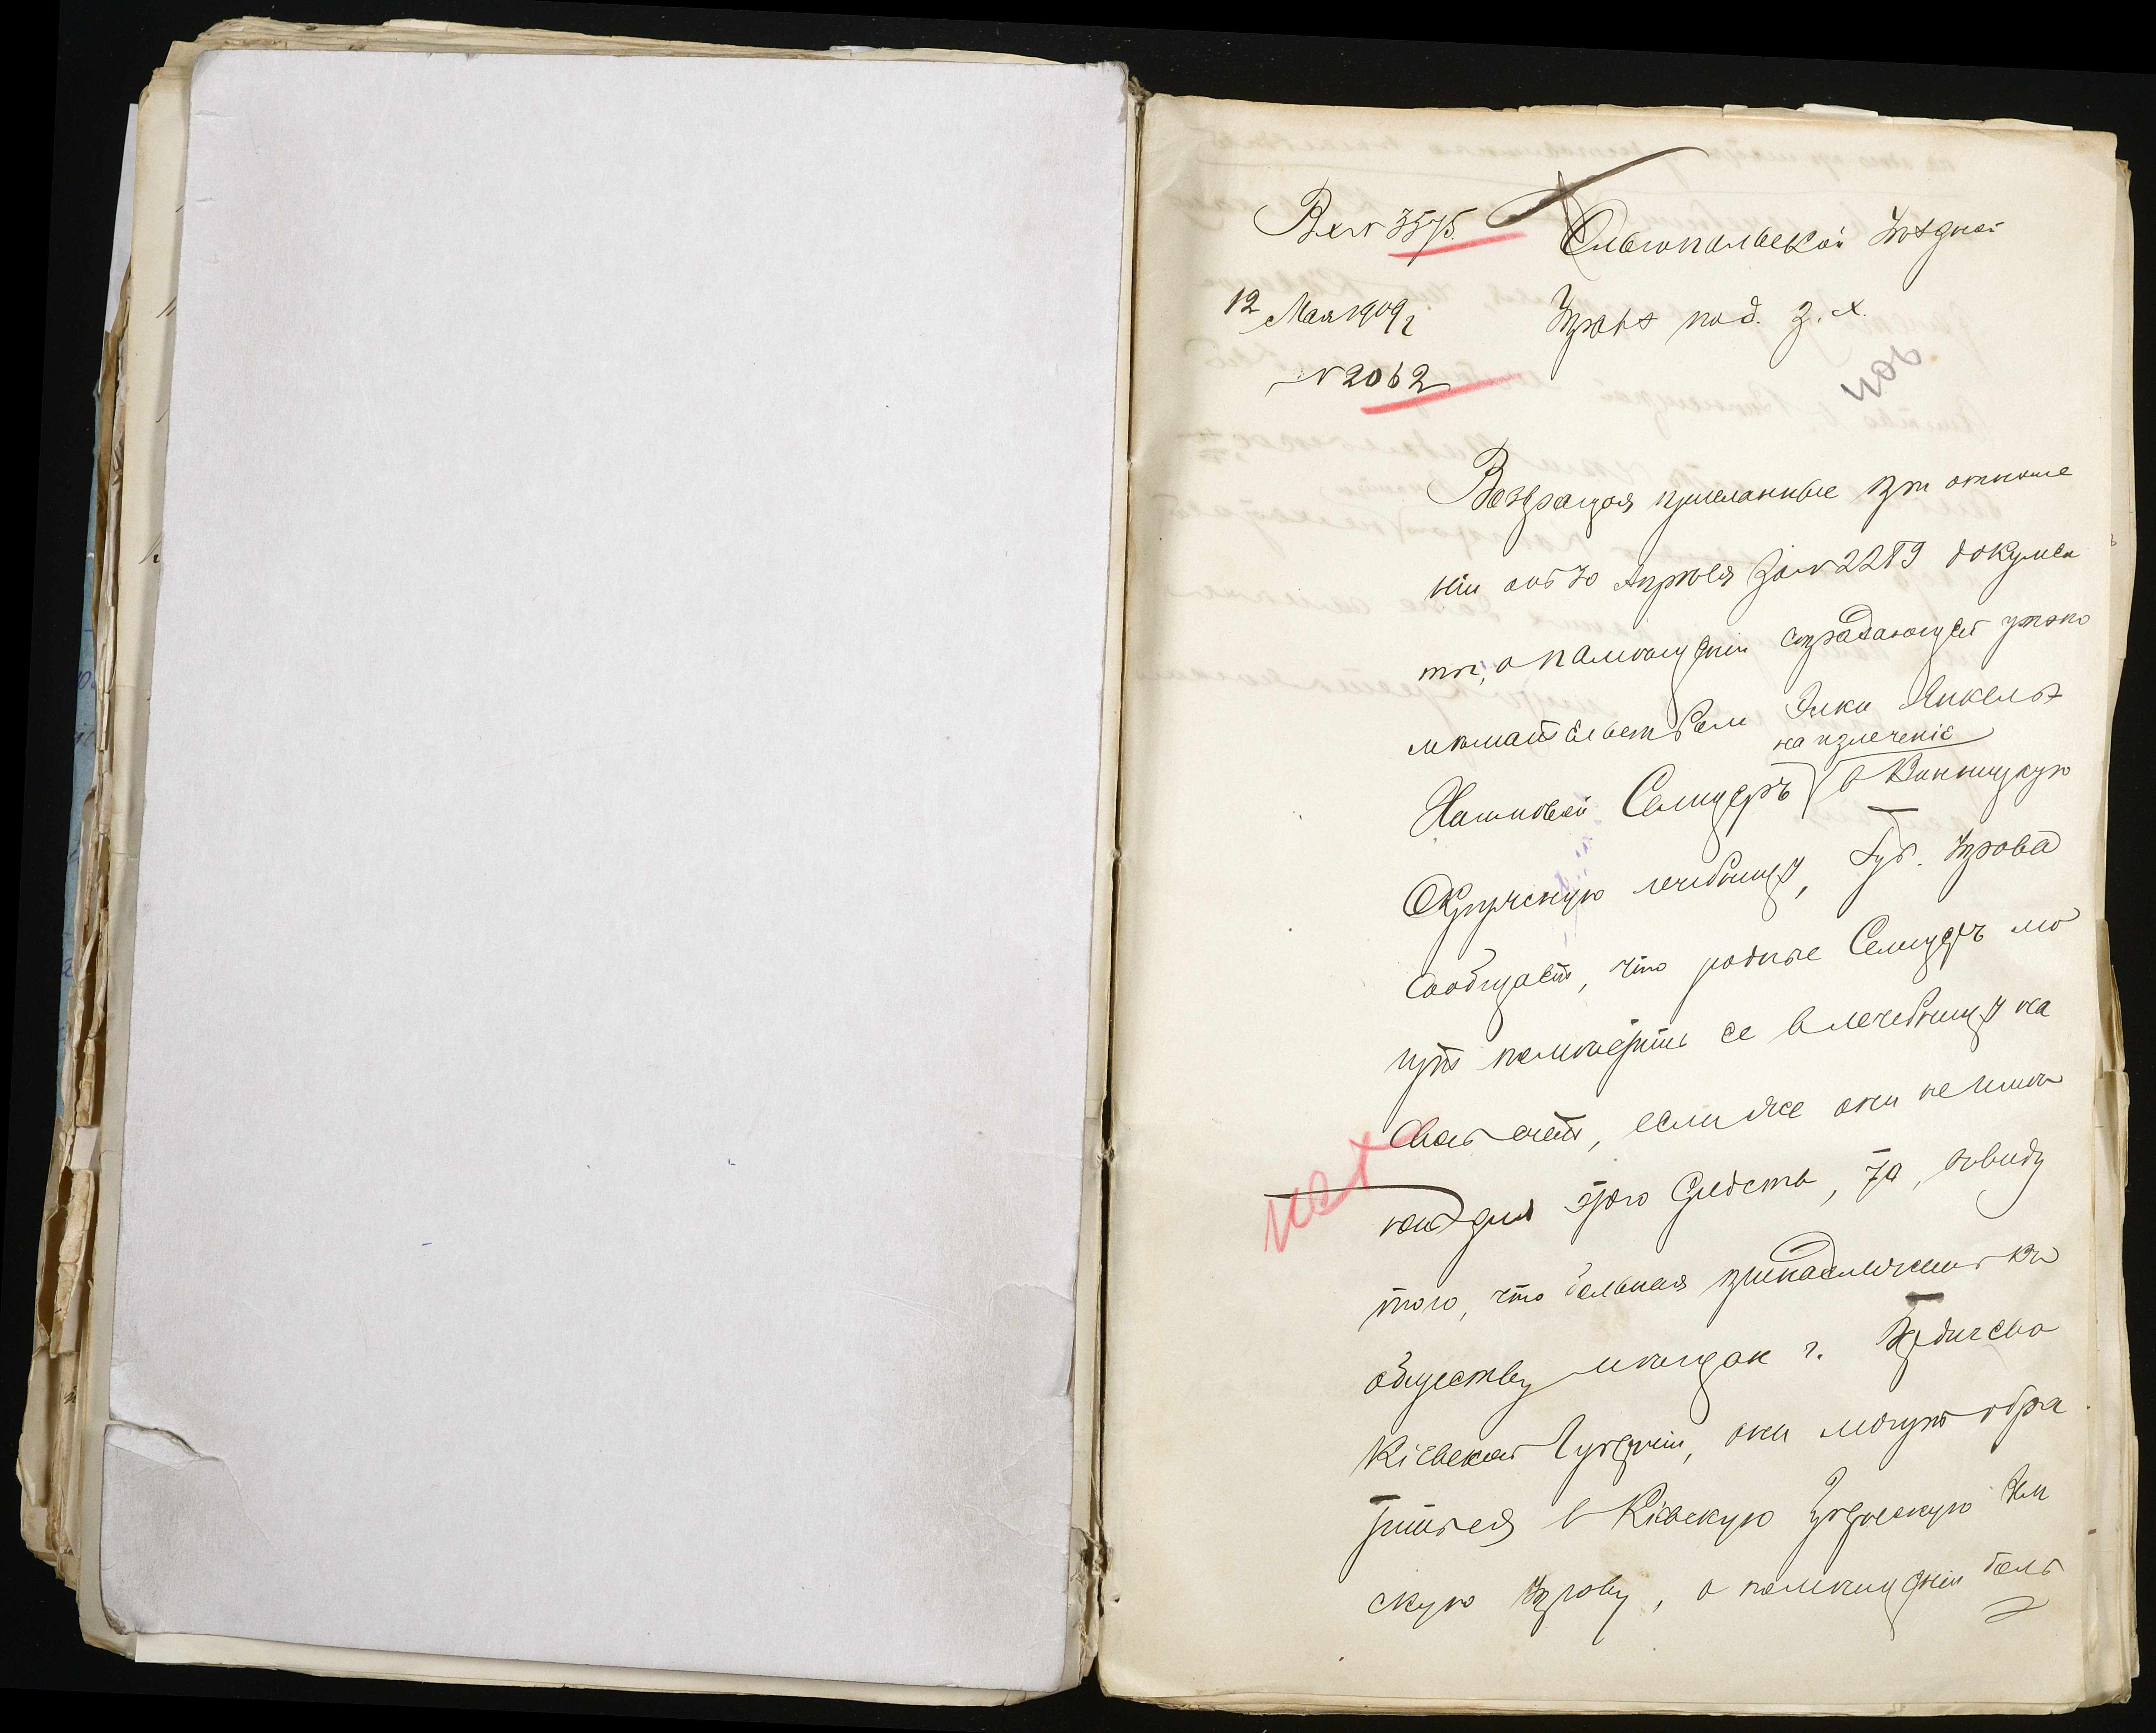 Вх № 3575.
Ольгопольской Уѣздной
12 Мая 1909 г
Управѣ по д. з. х.
№ 2062
Возвращая присланные при отноше
ніи отъ 30 Апрѣля за № 2289 докумен
ты, о помѣщеніи страдающей умопо
мѣшательствомъ Элки Янкель
на излеченіе
Семидеръ въ Винницкую
Окружную лечебницу, Губ. Управа
сообщаетъ, что родные Семидеръ мо
гутъ помѣстить ее въ лечебницу на
свой счетъ, если же они не имѣ
нет
ютъ для этого средствъ, то, ввиду
того, что больная принадлежитъ къ
обществу мѣщан г. Бердичева
Кіевской Губерніи, они могутъ обра
титься в Кіевскую Губернскую Зем
скую Управу, о помѣщеніи боль